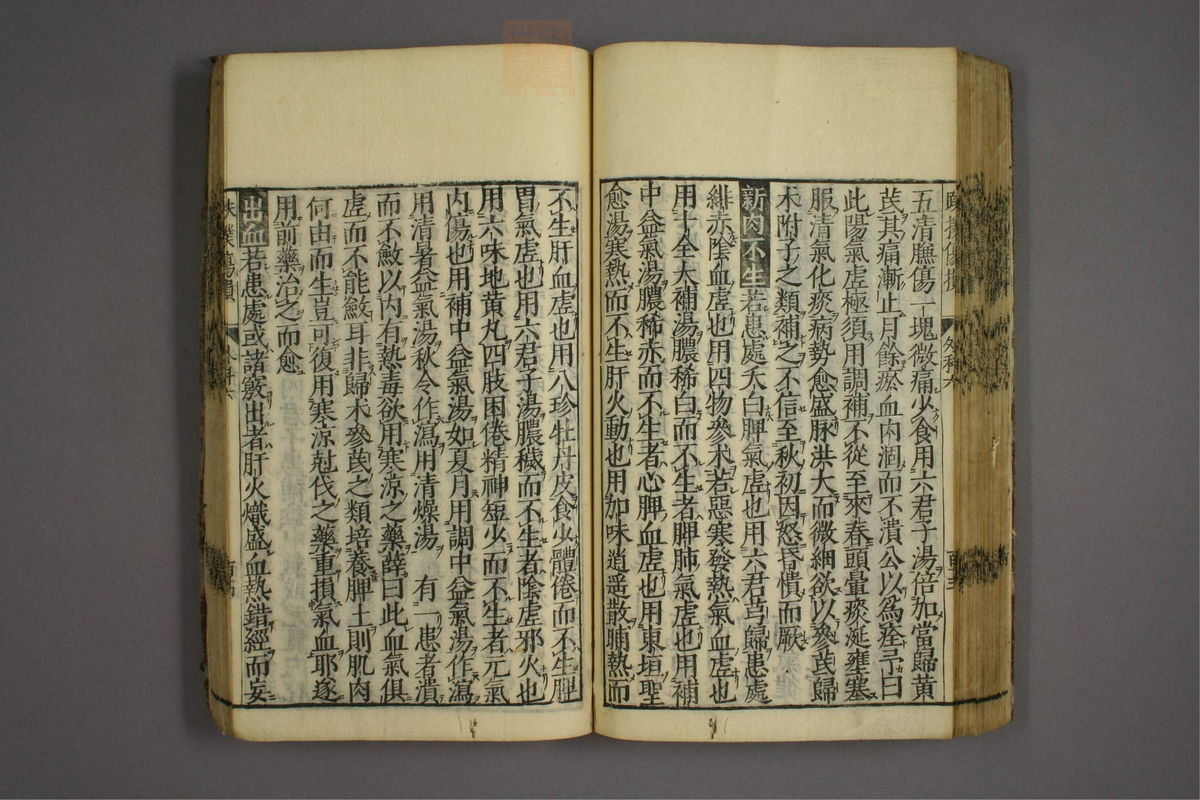 五清臁傷一塊微痛少食用六君子湯倍加當歸黃
芪其痛漸止月餘瘀血內涸而不潰公以為痊予曰
此陽氣虛極須用調補不從至來春頭暈痰涎壅塞
服清氣化痰病勢愈盛脉洪大而微細欲以參芪歸
木附子之類補之不信至秋初因怒昏憒而厥
新肉不生若患處夭白脾氣虛也用六君芎歸患處
緋赤陰血虛也用四物參木若惡寒發熱氣血虛也
用十全大補湯膿稀白而不生者脾肺氣虛也用補
中益氣湯膿稀赤而不生者心脾血虛也用東垣聖
愈湯寒熱而不生肝火動也用加味逍遥散晡熱而
不生肝血虛也用八珍牡丹皮食少體倦而不生脾
胃氣虛也用六君子湯膿穢而不生者陰虛邪火也
用六味地黃丸四肢困倦精神短少而不生者元氣
內傷也用補中益氣湯如夏月用調中益氣湯作瀉
用清暑益氣湯秋令作瀉用清燥湯 有一患者潰
而不斂以內有熱毒欲用寒涼之藥薛曰此血氣俱
虛而不能斂耳非歸木參芪之類培養脾土則肌肉
何由而生豈可復用寒涼尅伐之藥重損氣血耶遂
用前藥治之而愈
出血若患處或諸竅出者肝火熾盛血熱錯經而妄